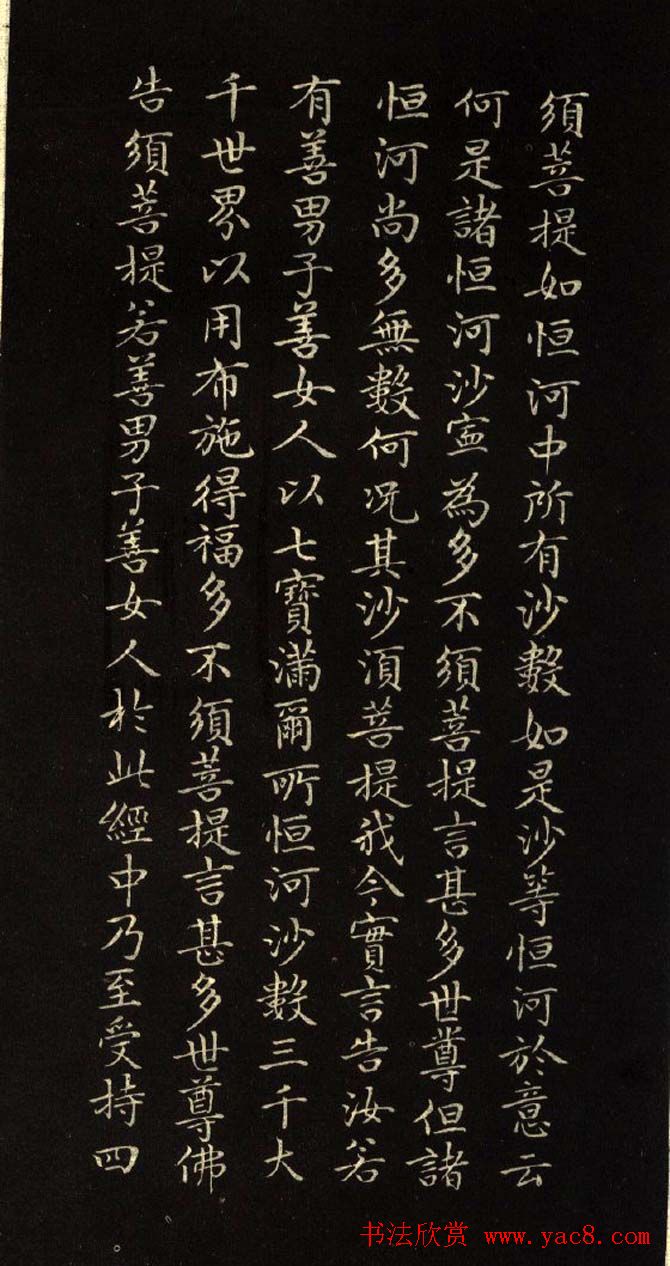 須菩提如恒河中所有沙數如是沙等恒河於意云
何是諸恒河沙寍為多不須菩提言甚多世尊但諸
恒河尚多無數何况其沙須菩提我今實言告汝若
有善男子善女人以七寶滿爾所恒河沙數三千大
千世界以用布施得福多不須菩提言甚多世尊佛
告須菩提若善男子善女人於此經中乃至受持四
书法欣赏 www.yac8.com